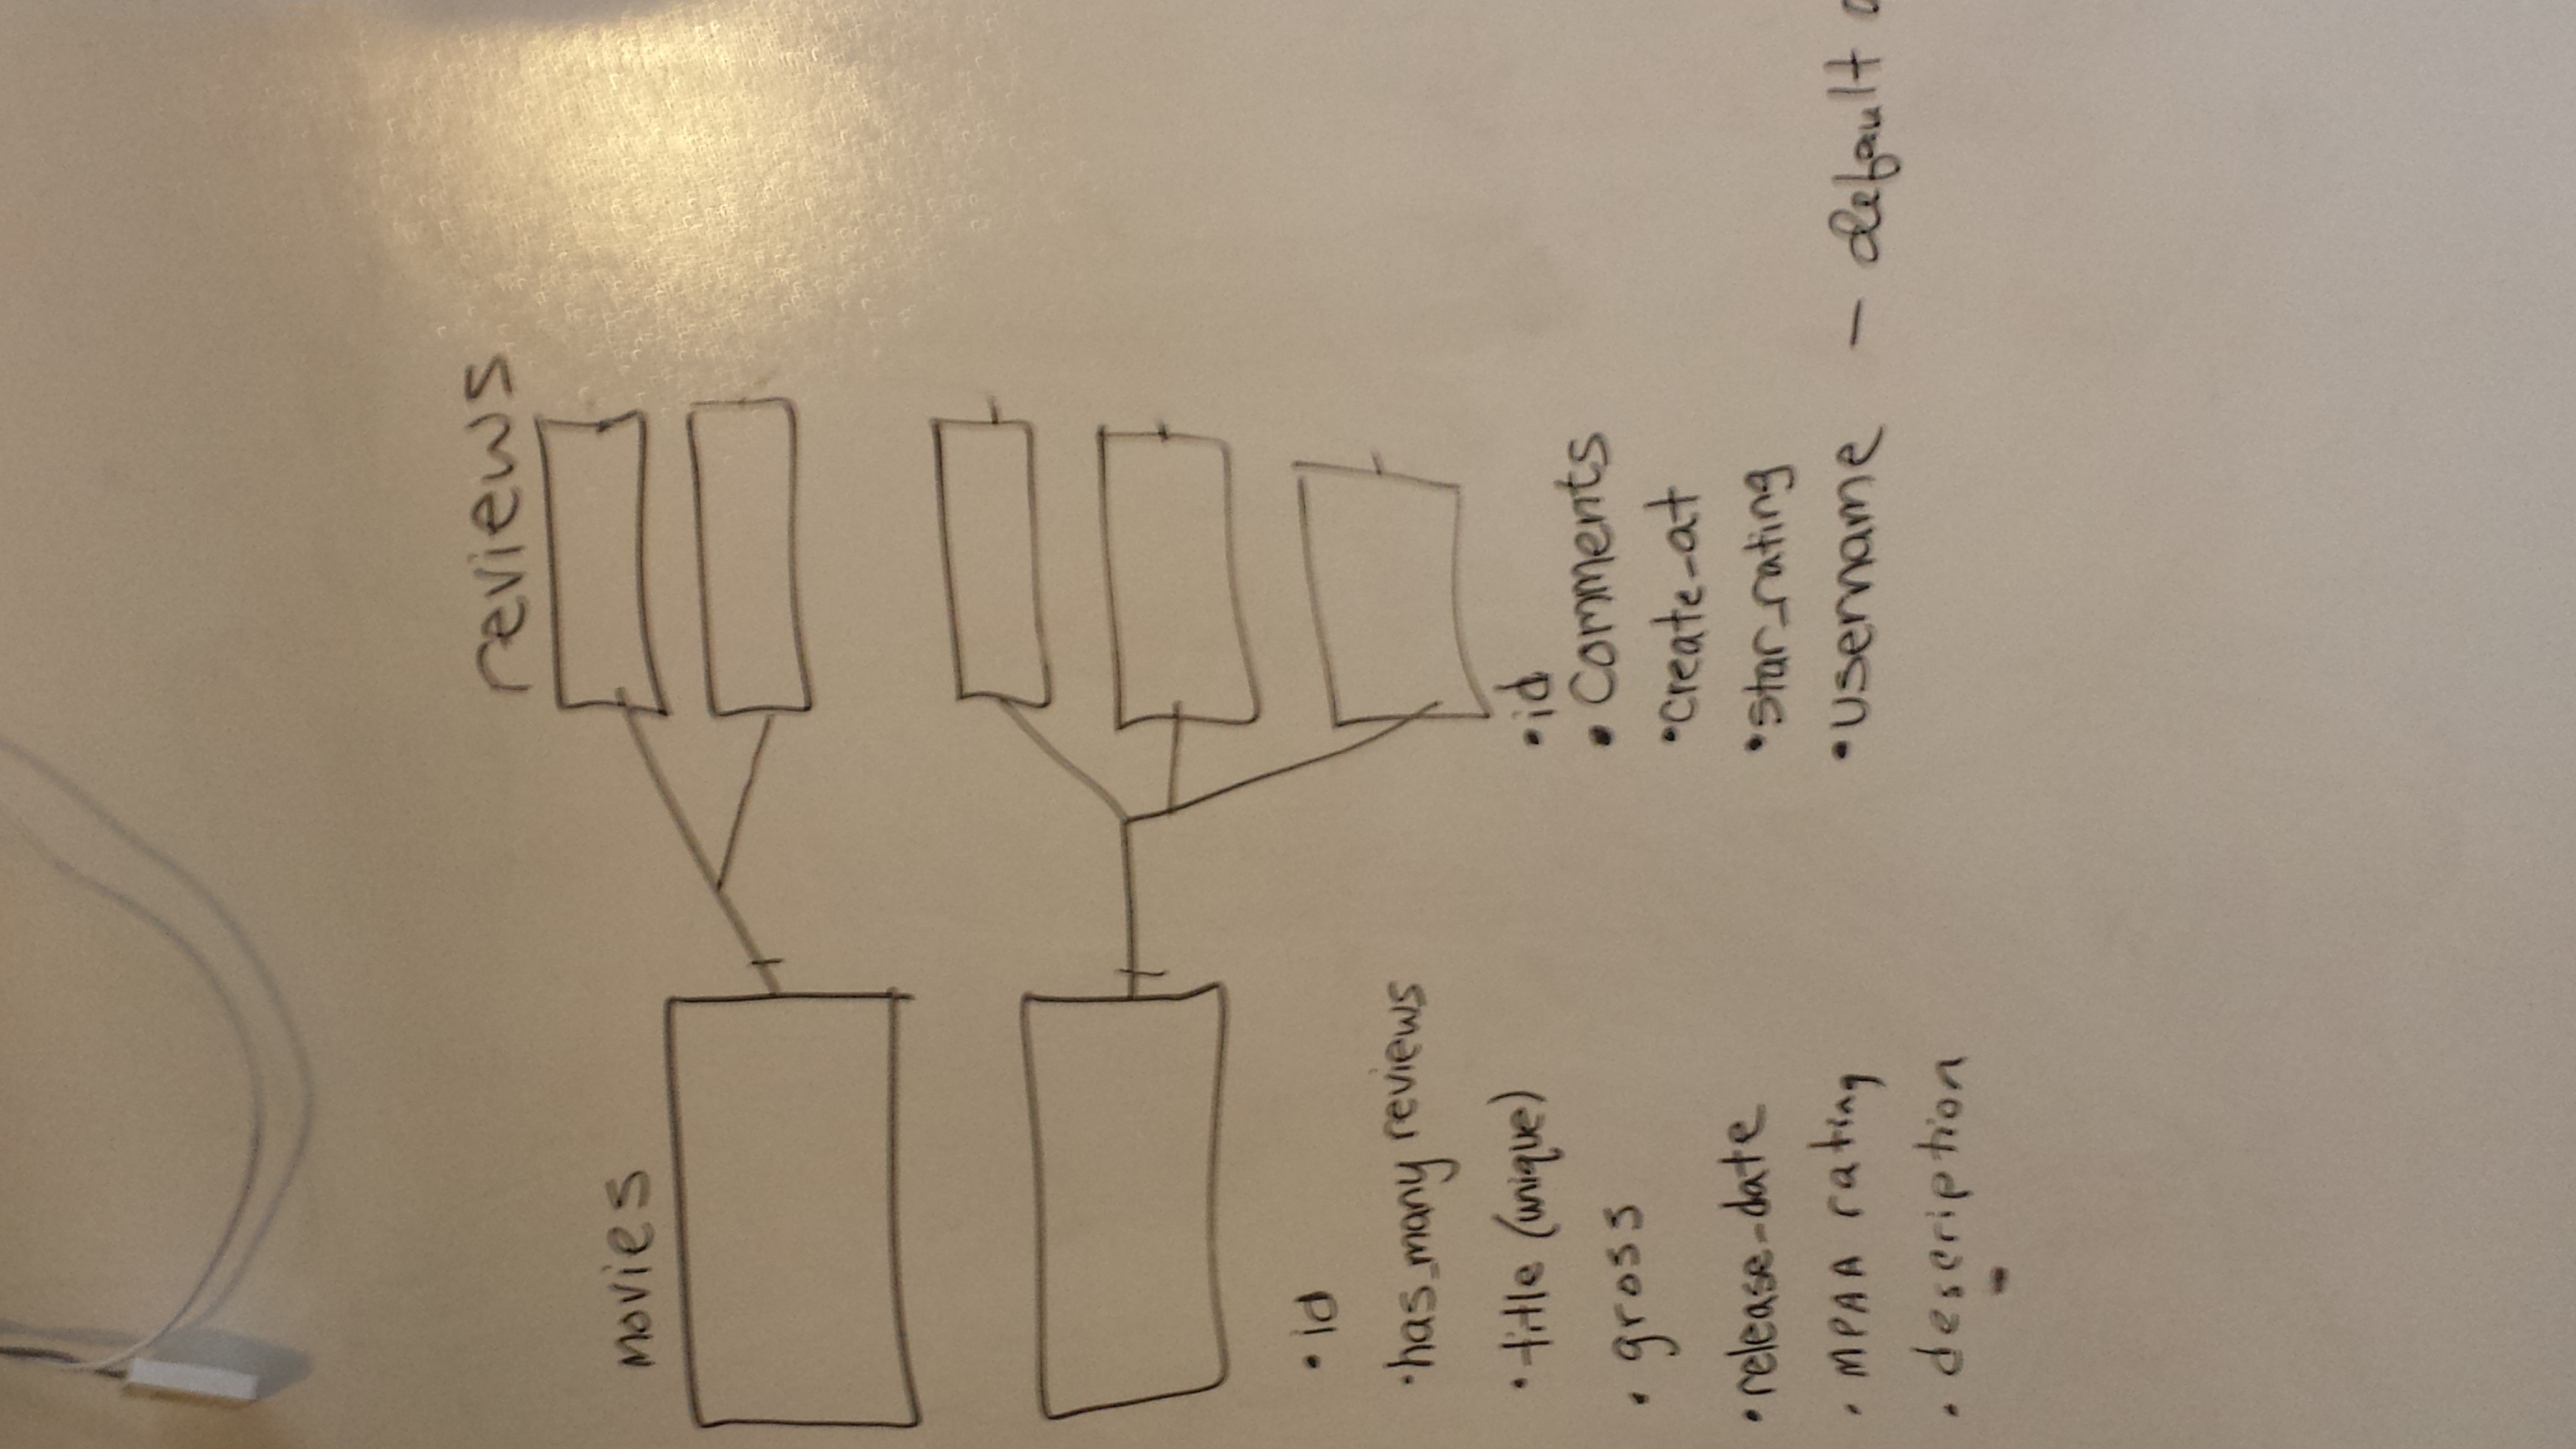 reviews
movies
• id
• has_many reviews
• title (unique)
• gross
• release_date
• MPAA rating
• description
-
• id
• Comments
• create_at
• star_rating
• username — default